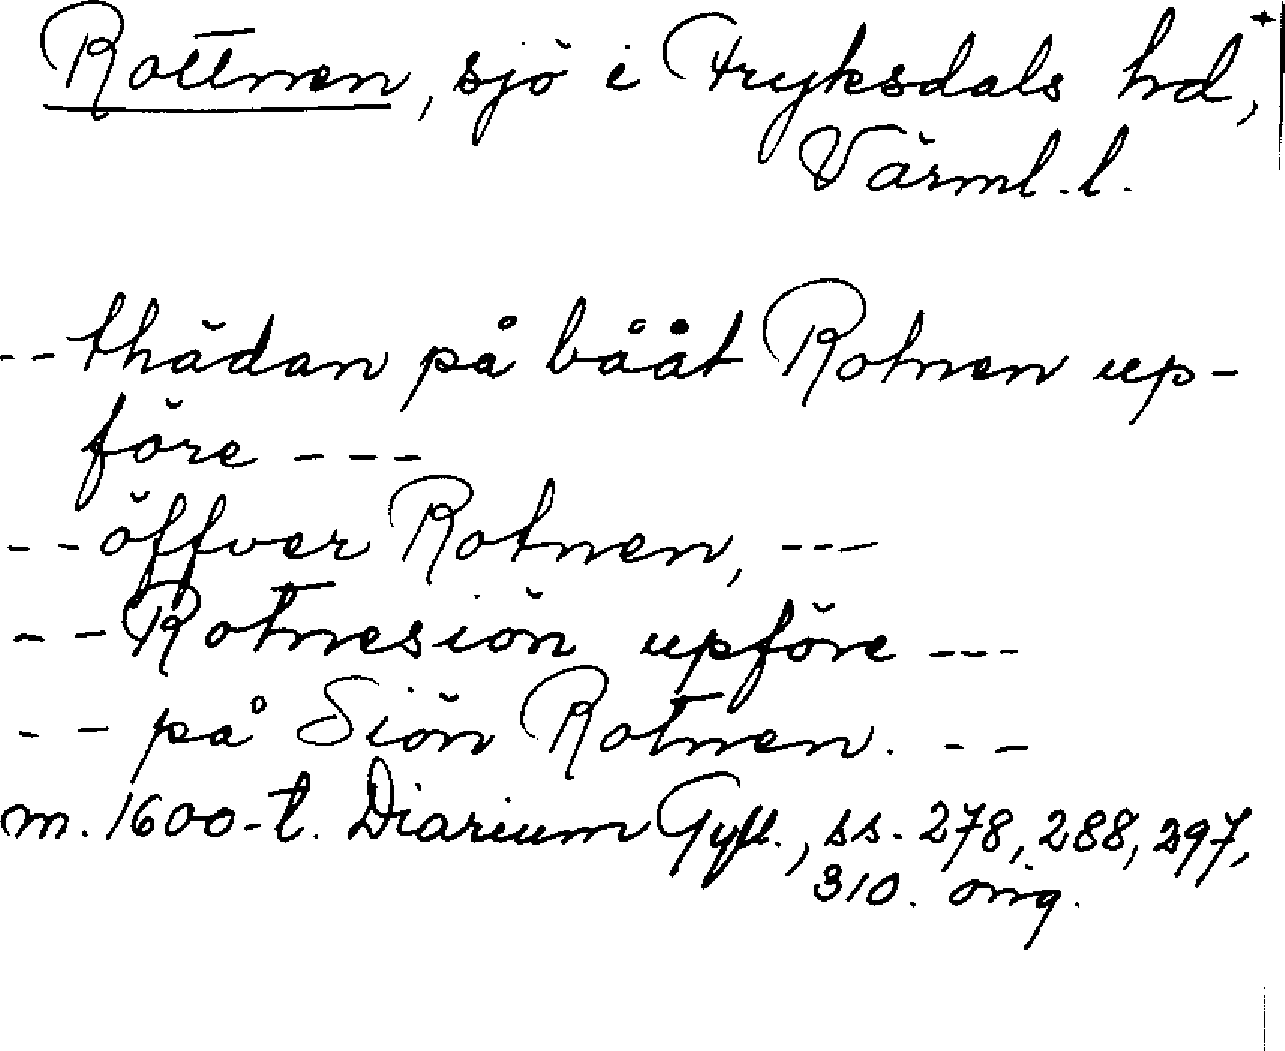 Rottnen, sjö i Fryksdals hd, +
Värml. l.
-- thädan på bååt Rotnen up-
före ---
-- öffver Rotnen, ---
-- Rotnesiön upföre ---
-- på Siön Rotnen. --
m. 1600-t. Diarium Gyll., ss. 278, 288, 297,
310. orig.